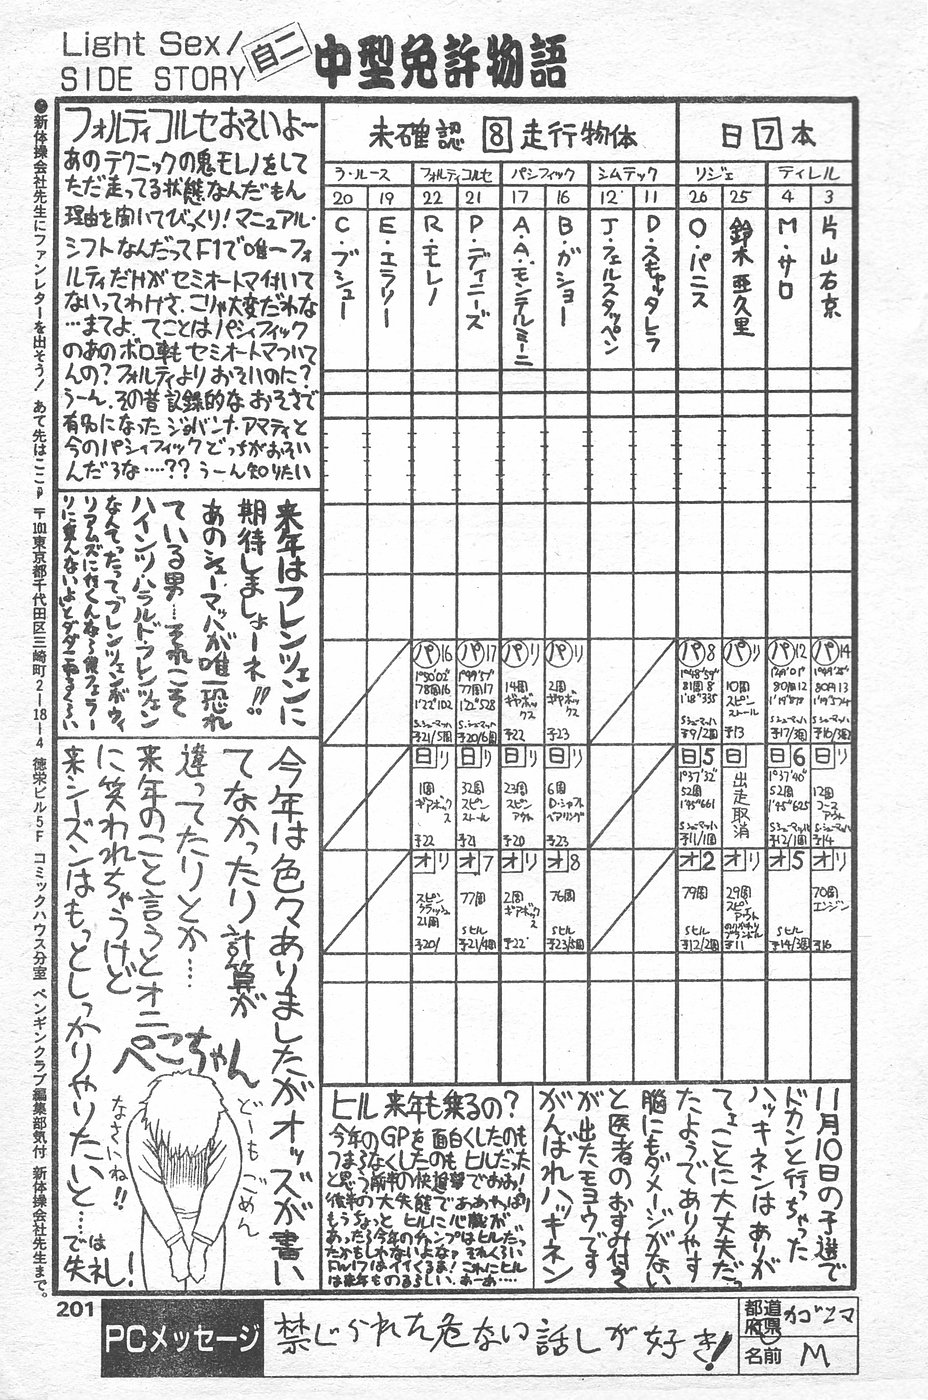 Light Sex/
SIDE STORY
自二
中型免許物語
●新体操会社先生にファンレターを出そう! あて先はここ 〒101東京都千代田区三崎町2-18-4 徳栄ビル5F コミックハウス分室 ペンギンクラブ編集部気付 新体操会社先生まで。
フォルティコルセおそいよ〜
あのテクニックの鬼モレノをして
ただ走ってる状態なんだもん
理由を聞いてびっくり!マニュアル・
シフトなんだってF1で唯一フォ
ルティだけがセミオートマ付いて
ないってわけさ、こりゃ大変だわな
…まてよ、てことはパシィフィック
のあのボロ車もセミオートマついて
んの?フォルティよりおそいのに?
うーん、その昔記録的なおそさで
有名になったジョバンナ・アマティと
今のパシィフィックどっちがおそい
んだろな…??うーん知りたい
来年はフレンツェンに
期待しましょーネ!!
あのシューマッハが唯一恐れ
ている男…それこそ
ハインツ・ハラルド・フレンツェン
なんてったって「フレンツェンがウィ
リアムズに行くんなら僕フェラー
今年は色々ありましたがオッズが書い
てなかったり計算が
違ってたりとか……
来年のこと言うとオニ
に笑われちゃうけど
来シーズンはもっとしっかりやりたいと…では
失礼!
ぺこちゃん
どーもごめん
なさいね!!
未確認 8 走行物体
日 7 本
ラ・ルース フォルティコルセ パシフィック シムテック リジェ ティレル
20 19 22 21 17 16 12 11 26 25 4 3
C・ブシュー
E・エラリー
R・モレノ
P・ディニーズ
A・A・モンテルミーニ
B・ガショー
J・フェルスタッペン
D・スキャッタレラ
O・パニス
鈴木亜久里
M・サロ
片山右京
パ16 パ17 パリ パリ パ8 パリ パ12 パ14
1°50'02"
78周16
1'22"102
S.シューマッハ
予21/5周
77周17
1'22"528
S.シューマッハ
予20/6周
14周
ギヤボックス
予22
2周
ギヤボックス
予23
1°48'59"
81周8
1'18"335
S.シューマッハ
予9/2周
10周
スピン
ストール
予13
80周12
S.シューマッハ
予17/3周
80周13
S.シューマッハ
予16/3周
日リ 日リ 日リ 日リ 日5 日 日6 日リ
1周
ギアボックス
予22
32周
スピン
ストール
予21
23周
スピン
アウト
予20
6周
D・シャフト
ベアリング
予23
1°37'32"
52周
1'45"661
S.シューマッハ
予11/1周
出走取消
1°37'40"
52周
1'45"625
S.シューマッハ
予12/1周
12周
コース
アウト
予14
オリ オ7 オリ オ8 オ2 オリ オ5 オリ
スピン
クラッシュ
21周
予20/
77周
S.ヒル
予21/4周
2周
ギアボックス
予22
76周
S.ヒル
予23/5周
79周
S.ヒル
予12/2周
29周
スピン
アウト
予11
S.ヒル
予14/3周
70周
エンジン
予16
ヒル来年も乗るの?
今年のGPを面白くしたのも
つまらなくしたのもヒルだった
と思う前半の快進撃でおお!
後半の大失態でああやっぱり
もうちょっとヒルに心臓が
あったら今年のチャンプはヒルだっ
たかもしゃないよなァそれくらい
FW17はイイくるま!これにヒル
は来年ものるらしい、あーあ…
11月10日の予選で
ドカンと行っちゃった
ハッキネンはありが
てェことに大丈夫だっ
たようでありやす
脳にもダメージがない
と医者のおすみ付き
が出たモヨウです
がんばれハッキネン
201
PCメッセージ
禁じられた危ない話しが好き!
都道府県 カゴシマ
名前 M